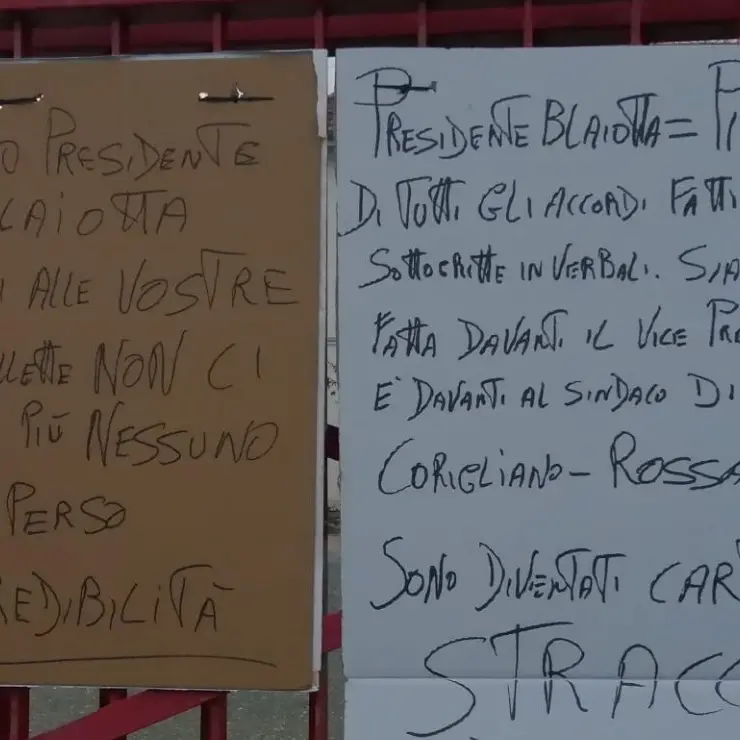 O PRESIDENTE
LAIOTTA
I ALLE VOSTRE
LLETTE NON CI
PIÙ NESSUNO
PERSO
EDIBILITÀ
PRESIDENTE BLAIOTTA = PI
DI TUTTI GLI ACCORDI FATTI
SOTTOCRITTE IN VERBALI. SIA
FATTA DAVANTI IL VICE PRE
E' DAVANTI AL SINDACO DI
CORIGLIANO - ROSSA
SONO DIVENTATI CAR
STRACC